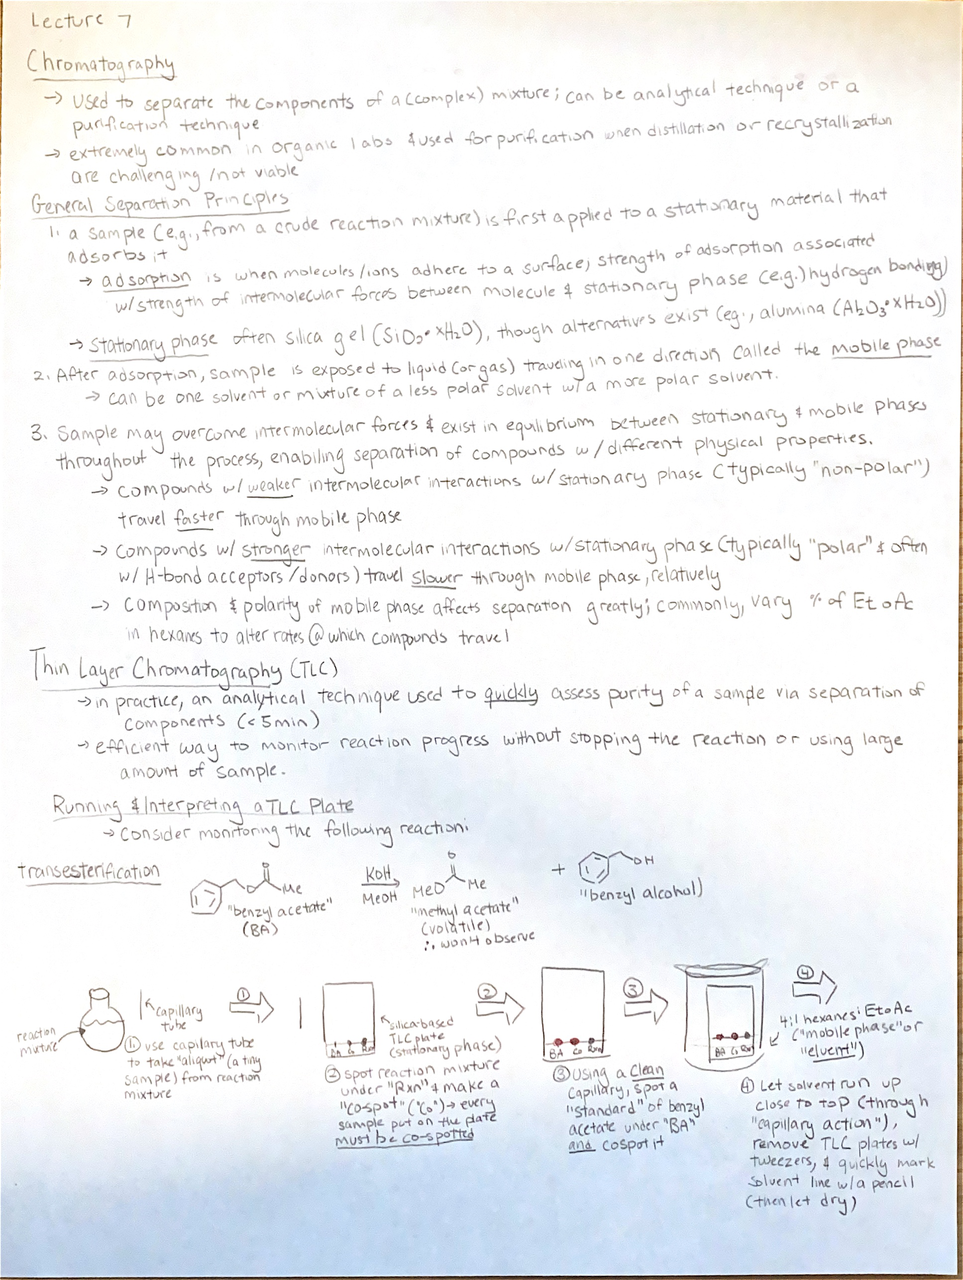 Lecture 7
Chromatography
→ used to separate the components of a (complex) mixture; can be analytical technique or a
purification technique
→ extremely common in organic labs & used for purification when distillation or recrystallization
are challenging/not viable
General Separation Principles
1. a sample (e.g., from a crude reaction mixture) is first applied to a stationary material that
adsorbs it
→ adsorption is when molecules/ions adhere to a surface; strength of adsorption associated
w/strength of intermolecular forces between molecule & stationary phase (e.g.) hydrogen bonding)
→ stationary phase often silica gel (SiO₂•xH₂O), though alternatives exist (eg., alumina (Al₂O₃•xH₂O))
2. After adsorption, sample is exposed to liquid (or gas) traveling in one direction called the mobile phase
→ can be one solvent or mixture of a less polar solvent w/ a more polar solvent.
3. Sample may overcome intermolecular forces & exist in equilibrium between stationary & mobile phases
throughout the process, enabiling separation of compounds w/ different physical properties.
→ compounds w/ weaker intermolecular interactions w/ stationary phase (typically "non-polar")
travel faster through mobile phase
→ compounds w/ stronger intermolecular interactions w/stationary phase (typically "polar" & often
w/ H-bond acceptors/donors) travel slower through mobile phase, relatively
→ composition & polarity of mobile phase affects separation greatly; commonly, vary % of EtoAc
in hexanes to alter rates @ which compounds travel
Thin Layer Chromatography (TLC)
→ in practice, an analytical technique used to quickly assess purity of a sample via separation of
components (<5min)
→ efficient way to monitor reaction progress without stopping the reaction or using large
amount of sample.
Running & Interpreting a TLC Plate
→ Consider monitoring the following reaction:
transesterification
O
O
Me
"benzyl acetate"
(BA)
KOH
MeOH
O
MeO
Me
"methyl acetate"
(volatile)
∴ won't observe
+
OH
"benzyl alcohol)
reaction
mixture
capillary
tube
①
① use capillary tube
to take "aliquot" (a tiny
sample) from reaction
mixture
BA Co Rxn
silica-based
TLC plate
(stationary phase)
② spot reaction mixture
under "Rxn" & make a
"co-spot" ("Co") → every
sample put on the plate
must be co-spotted
②
BA Co Rxn
③ Using a clean
capillary, spot a
"standard" of benzyl
acetate under "BA"
and cospot it
③
BA Co Rxn
④
4:1 hexanes:EtoAc
("mobile phase" or
"eluent")
④ Let solvent run up
close to top (through
"capillary action"),
remove TLC plates w/
tweezers, & quickly mark
solvent line w/a pencil
(then let dry)